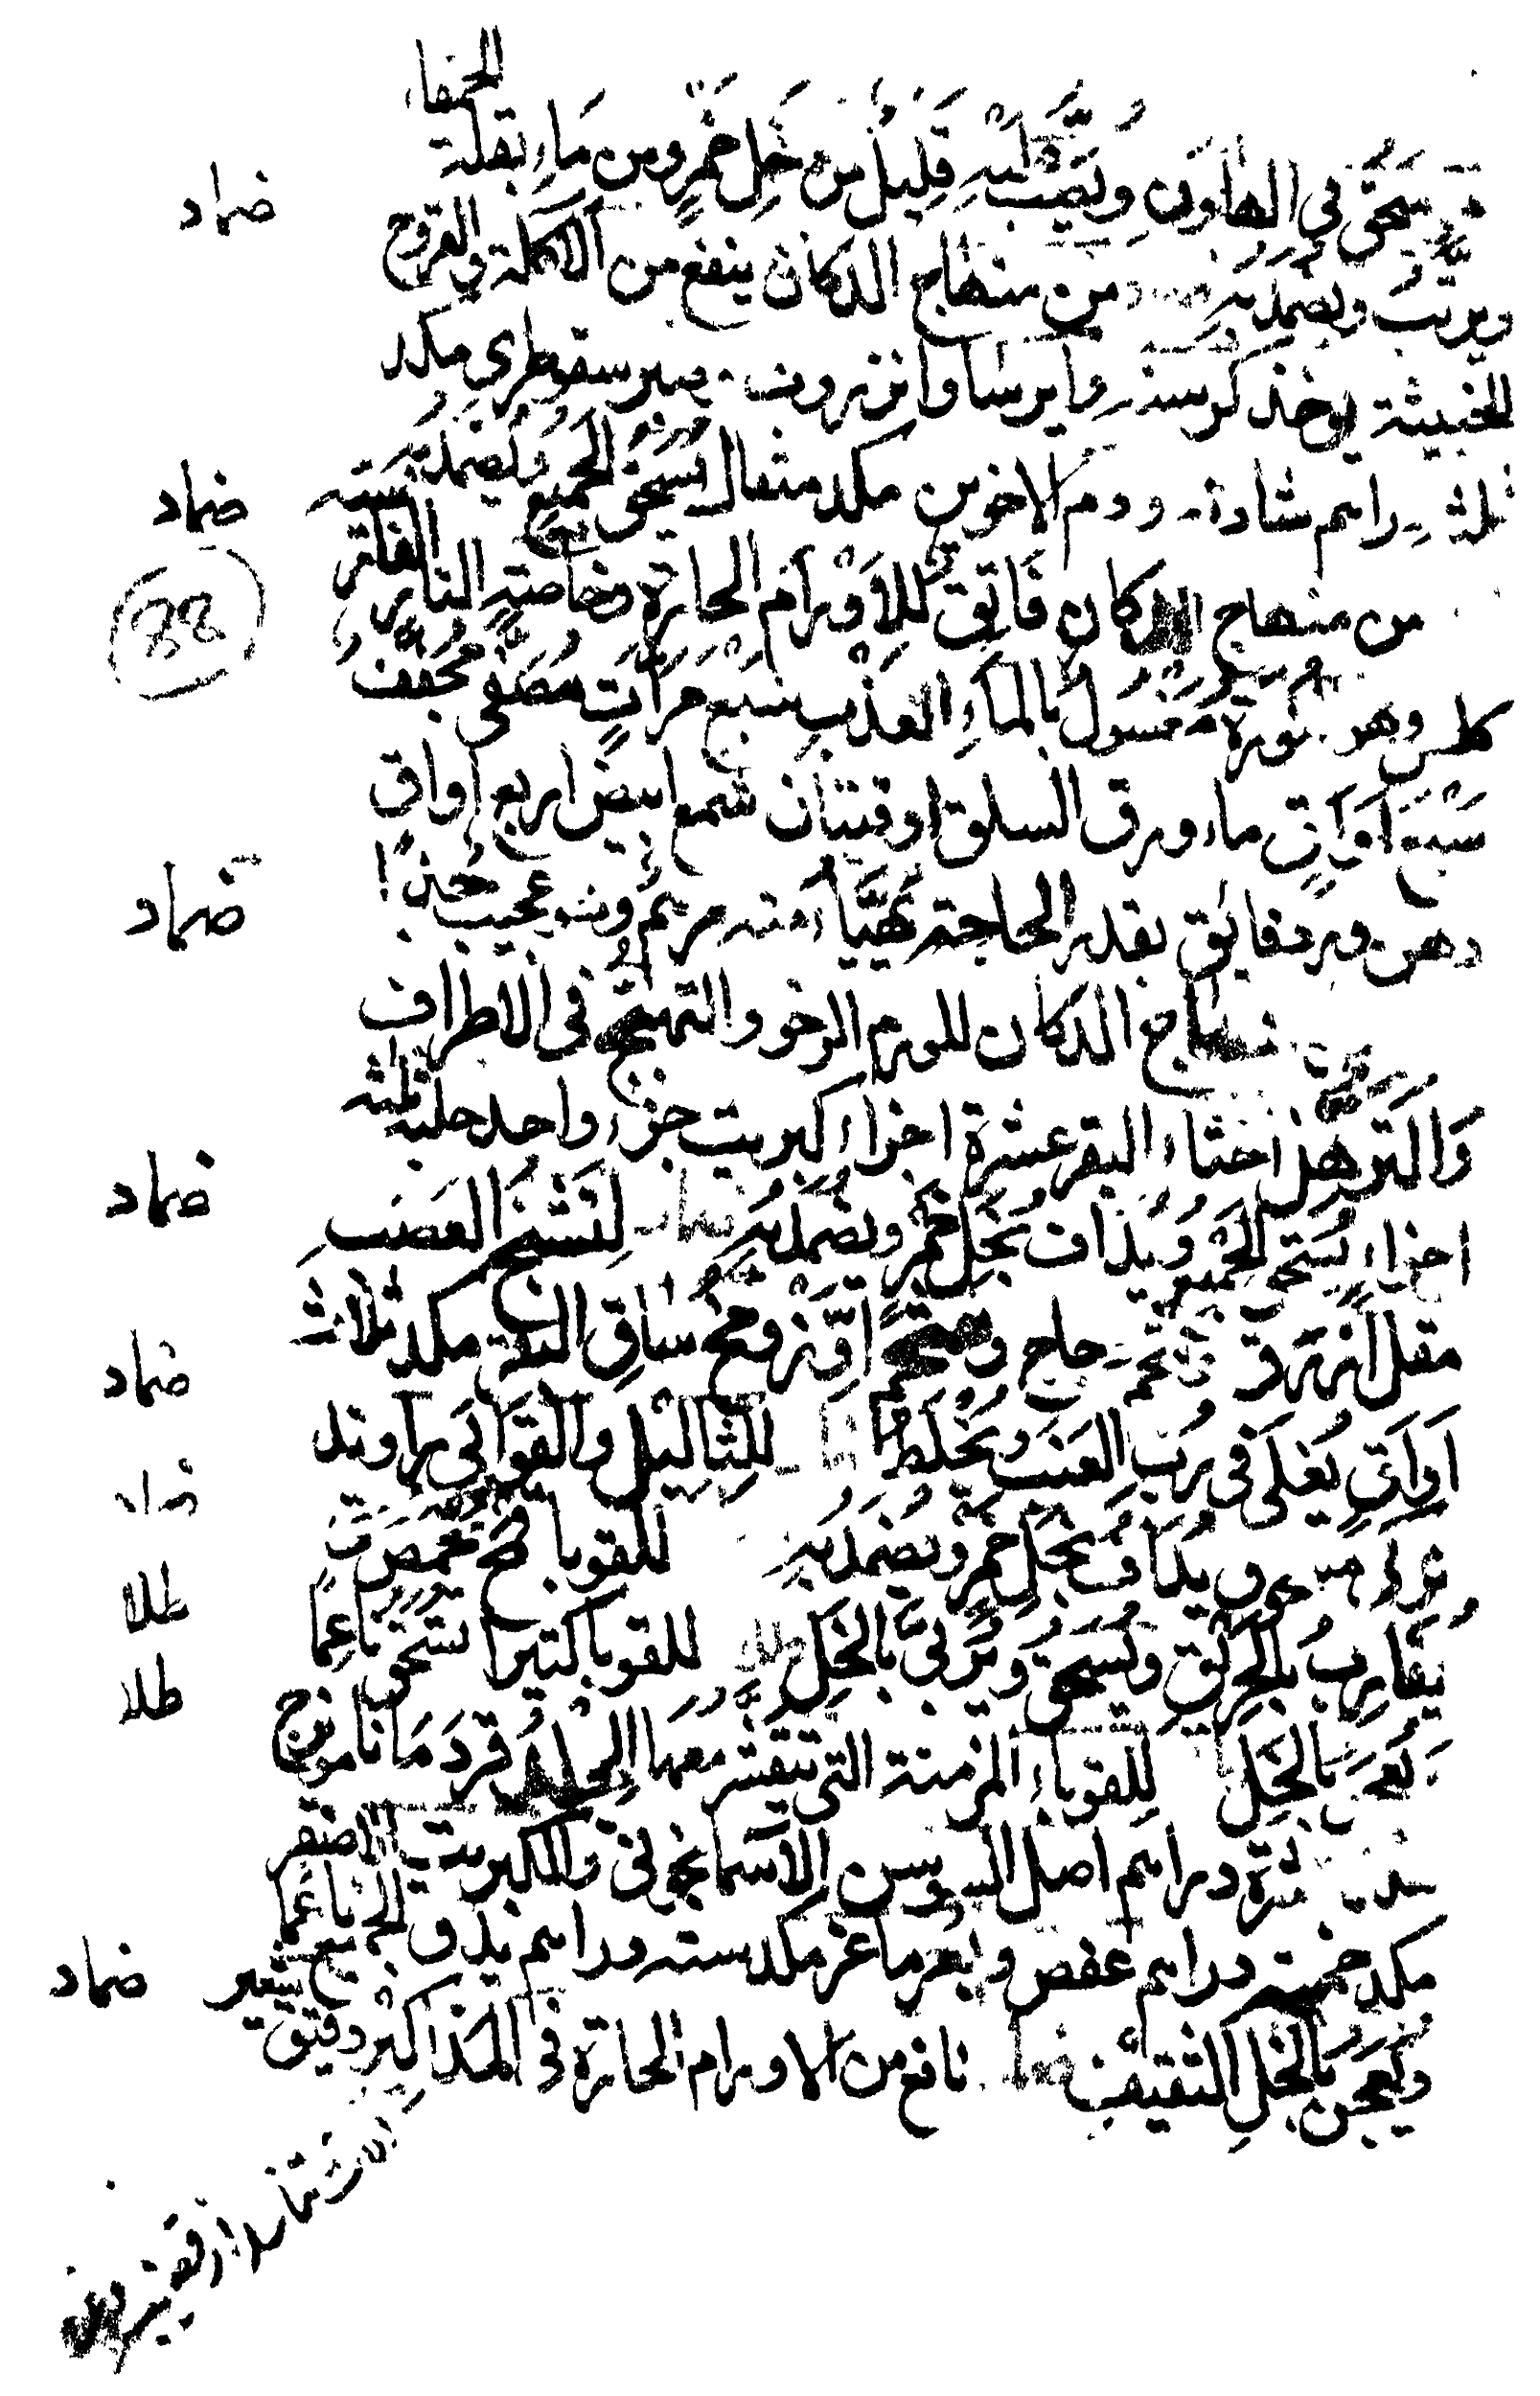 الحمقاء
يسحق في الهاون ويصب عليه قليل من خل خمر ومن ماء بقلة
ضماد
ويرتب ويضمد به من منهاج الدكان ينفع من الاكلة والقروح
الخبيثة يوخذ كرسنه وايرسا وانزروت وصبر سقوطري مكد
ثلثه دراهم شادنه ودم الاخوين مكد مثقال يسحق الجميع ويضمد به
ضماد
من منهاج الدكان فائق للاورام الحارة وخاصته النار الفاتر
كلس وهو نورة مغسول بالماء العذب سبع مرات مصفى مجفف
سبع اواق ماء ورق السلق اوقيتان شمع ابيض اربع اواق
دهن ورد فائق بقدر الحاجة يهيأ منه مرهم وهو عجيب جدا
ضماد
منهاج الدكان للورم الرخو والتهيج في الاطراف
والترهل اخثاء البقر عشرة اجزاء كبريت جزء واحد حلبه ثلثه
اجزاء يسحق الجميع ويذاف بخل خمر ويضمد به ضماد لتشنج العصب
ضماد
مقل ازرق وشحم دجاج وشحم اوز ومخ ساق البقر مكد ثلاث
ضماد
اواق يغلى في رب العنب ويخلط للثاليل والقوابي راوند
يسحق ويذاف بخل خمر ويضمد به للقوبا قمح يحمص حتى
طلا
يقارب الحريق ويسحق ويربى بالخل طلا للقوبا كثيرا يسحق ناعما
طلا
ويعجن بالخل للقوباء المزمنة التي تتقشر معها الجلد قردمانا مويزج
عشرة دراهم اصل السوسن الاسمانجوني والكبريت الاصفر
مكد خمسه دراهم عفص وبعر ماعز مكد سته دراهم يدق الجميع ناعما
ويعجن بالخل الثقيف ضماد نافع من الاورام الحارة في المذاكير دقيق شعير
ضماد